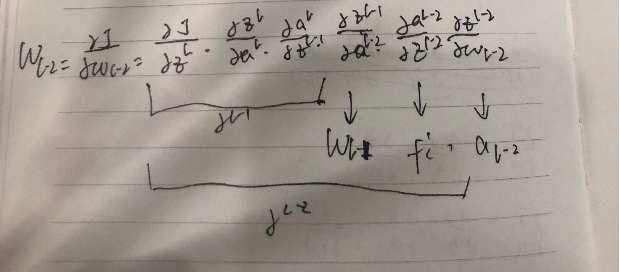 W_{l-2} = \frac{∂J}{∂w_{l-2}} = \frac{∂J}{∂z^{l}} · \frac{∂z^{l}}{∂a^{l}} · \frac{∂a^{l}}{∂z^{l-1}} \frac{∂z^{l-1}}{∂a^{l-2}} · \frac{∂a^{l-2}}{∂z^{l-2}} \frac{∂z^{l-2}}{∂w_{l-2}}
∂^{l-1} ↓ ↓ ↓
W_{l-1} f'_{i} · a_{l-2}
∂^{l-2}